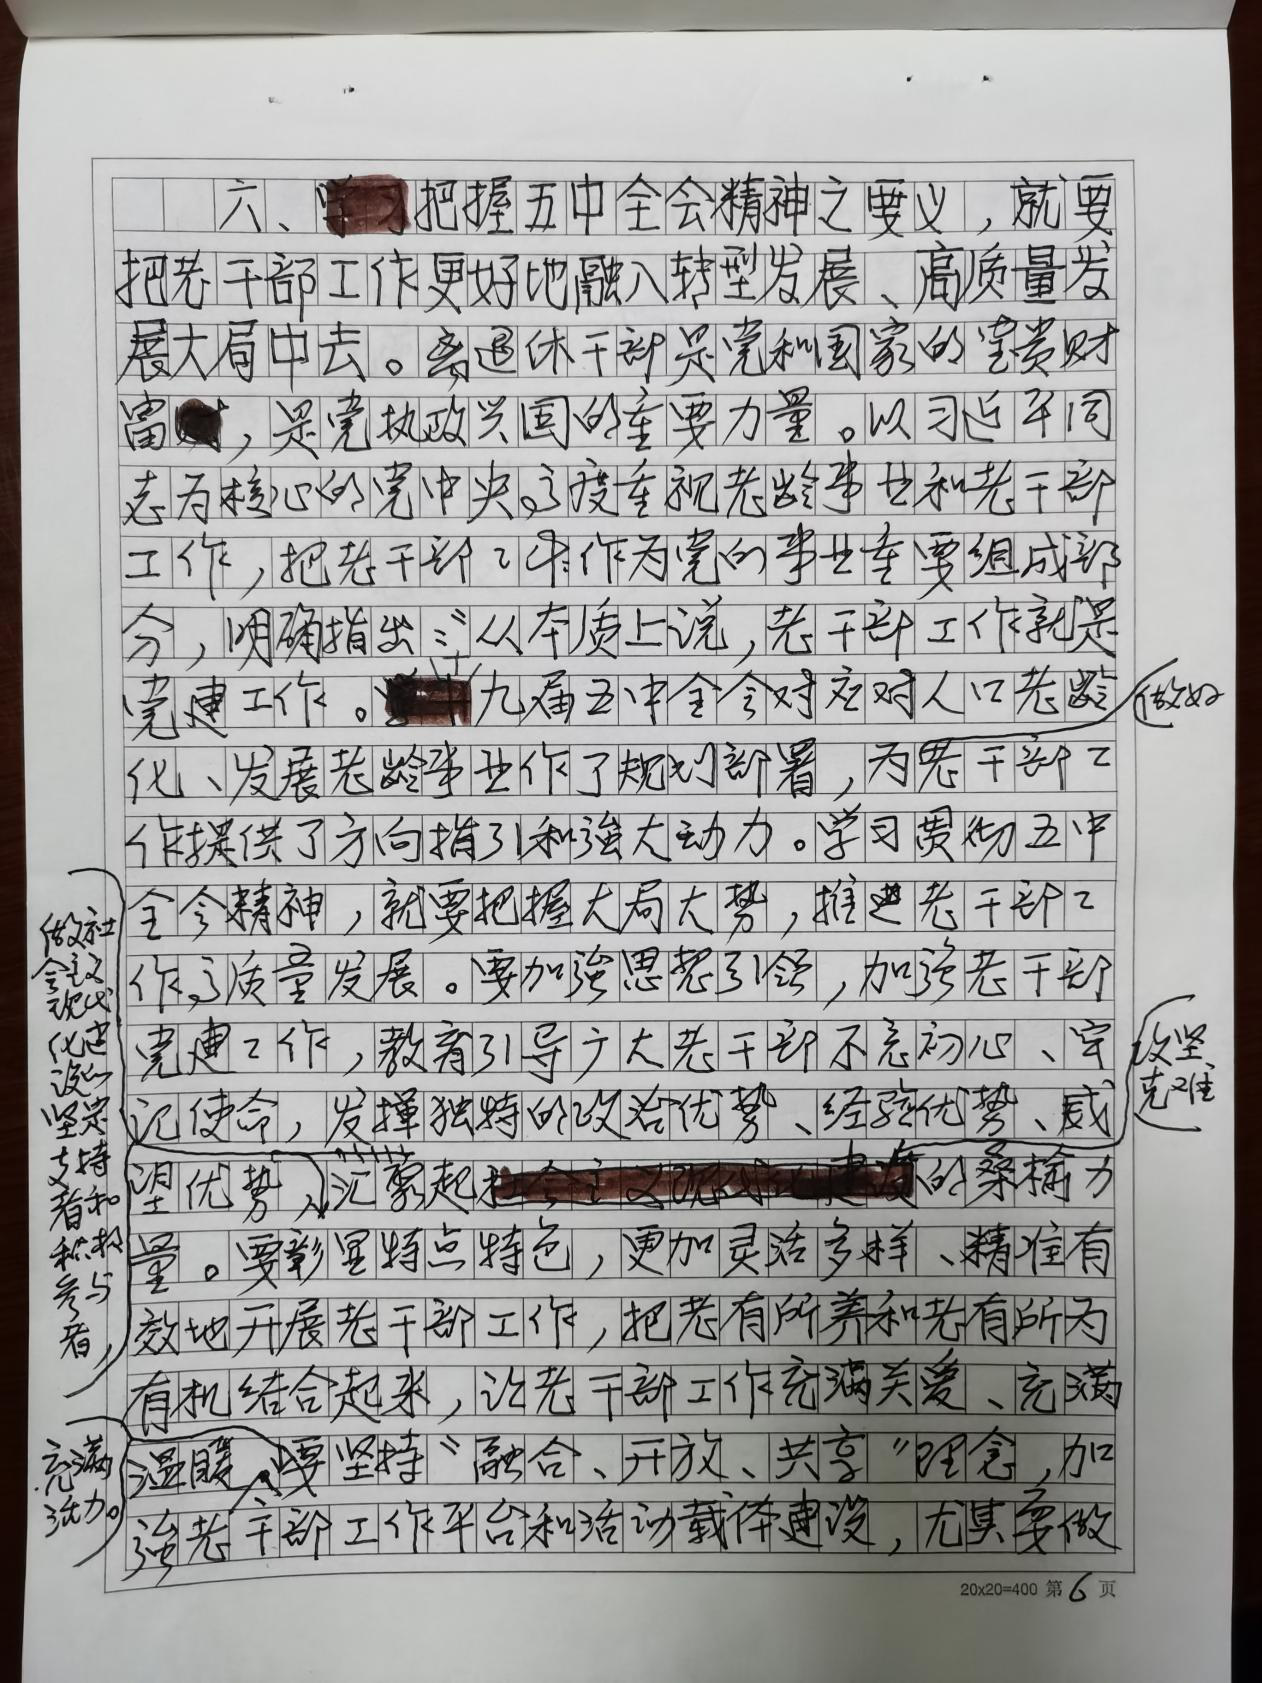 六、把握五中全会精神之要义，就要
把老干部工作更好地融入转型发展、高质量发
展大局中去。离退休干部是党和国家的宝贵财
富，是党执政兴国的重要力量。以习近平同
志为核心的党中央，高度重视老龄事业和老干部
工作，把老干部工作作为党的事业重要组成部
分，明确指出：“从本质上说，老干部工作就是
党建工作。”十九届五中全会对应对人口老龄
做好
化、发展老龄事业作了规划部署，为老干部工
作提供了方向指引和强大动力。学习贯彻五中
全会精神，就要把握大局大势，推进老干部工
作高质量发展。要加强思想引领，加强老干部
党建工作，教育引导广大老干部不忘初心、牢
记使命，发挥独特的政治优势、经验优势、威
攻坚
克难
望优势，汇聚起的桑榆力
做社
会主义
现代
化建
设的
坚定
支持
者和
积极
参与
者，
量。要彰显特点特色，更加灵活多样、精准有
效地开展老干部工作，把老有所养和老有所为
有机结合起来，让老干部工作充满关爱、充满
温暖、要坚持“融合、开放、共享”理念，加
充满
活力。
强老干部工作平台和活动载体建设，尤其要做
20x20=400 第6页